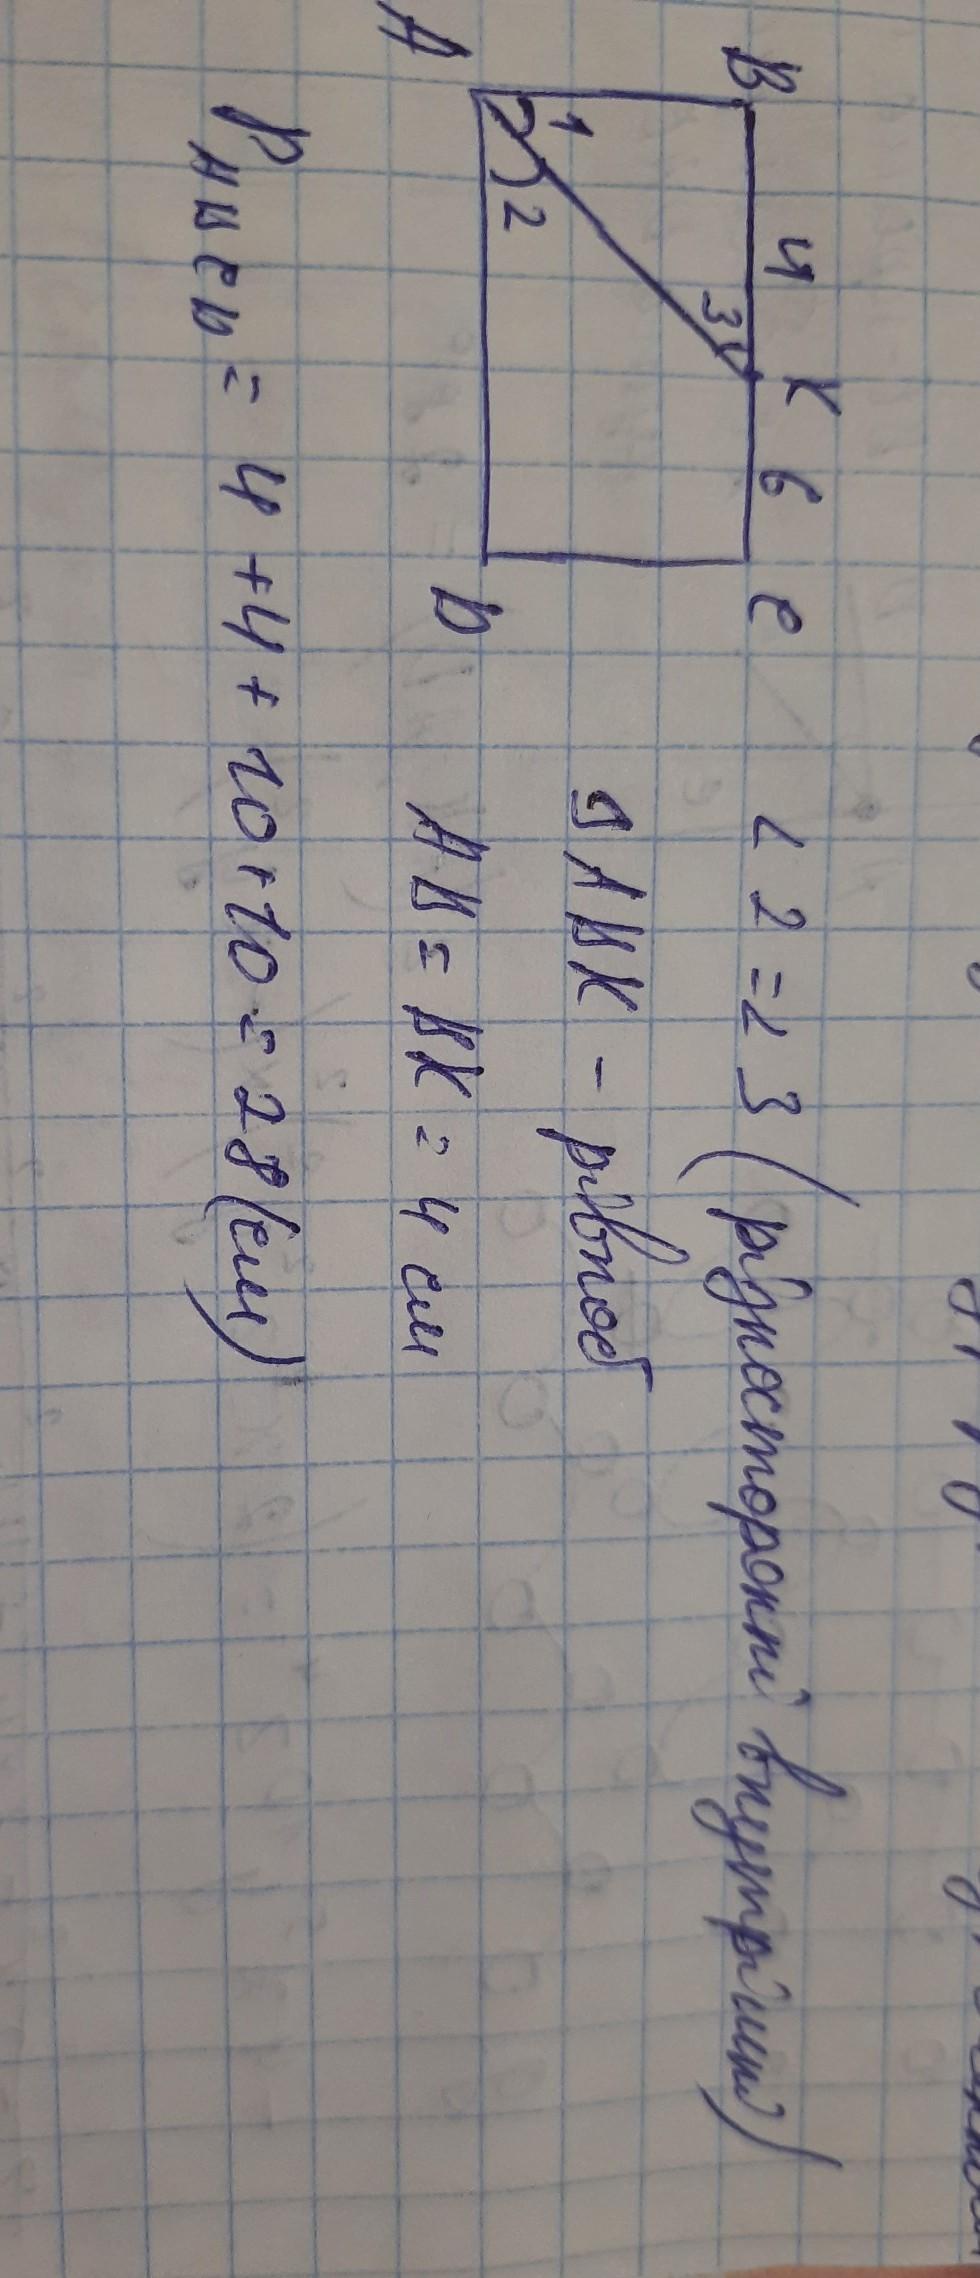 B 4 K 6 C
1 3
2
A D
∠2 = ∠3 (різносторонні внутрішні)
ΔABK - рівноб
AB = BK = 4 см
P ABCD = 4 + 4 + 10 + 10 = 28 (см)